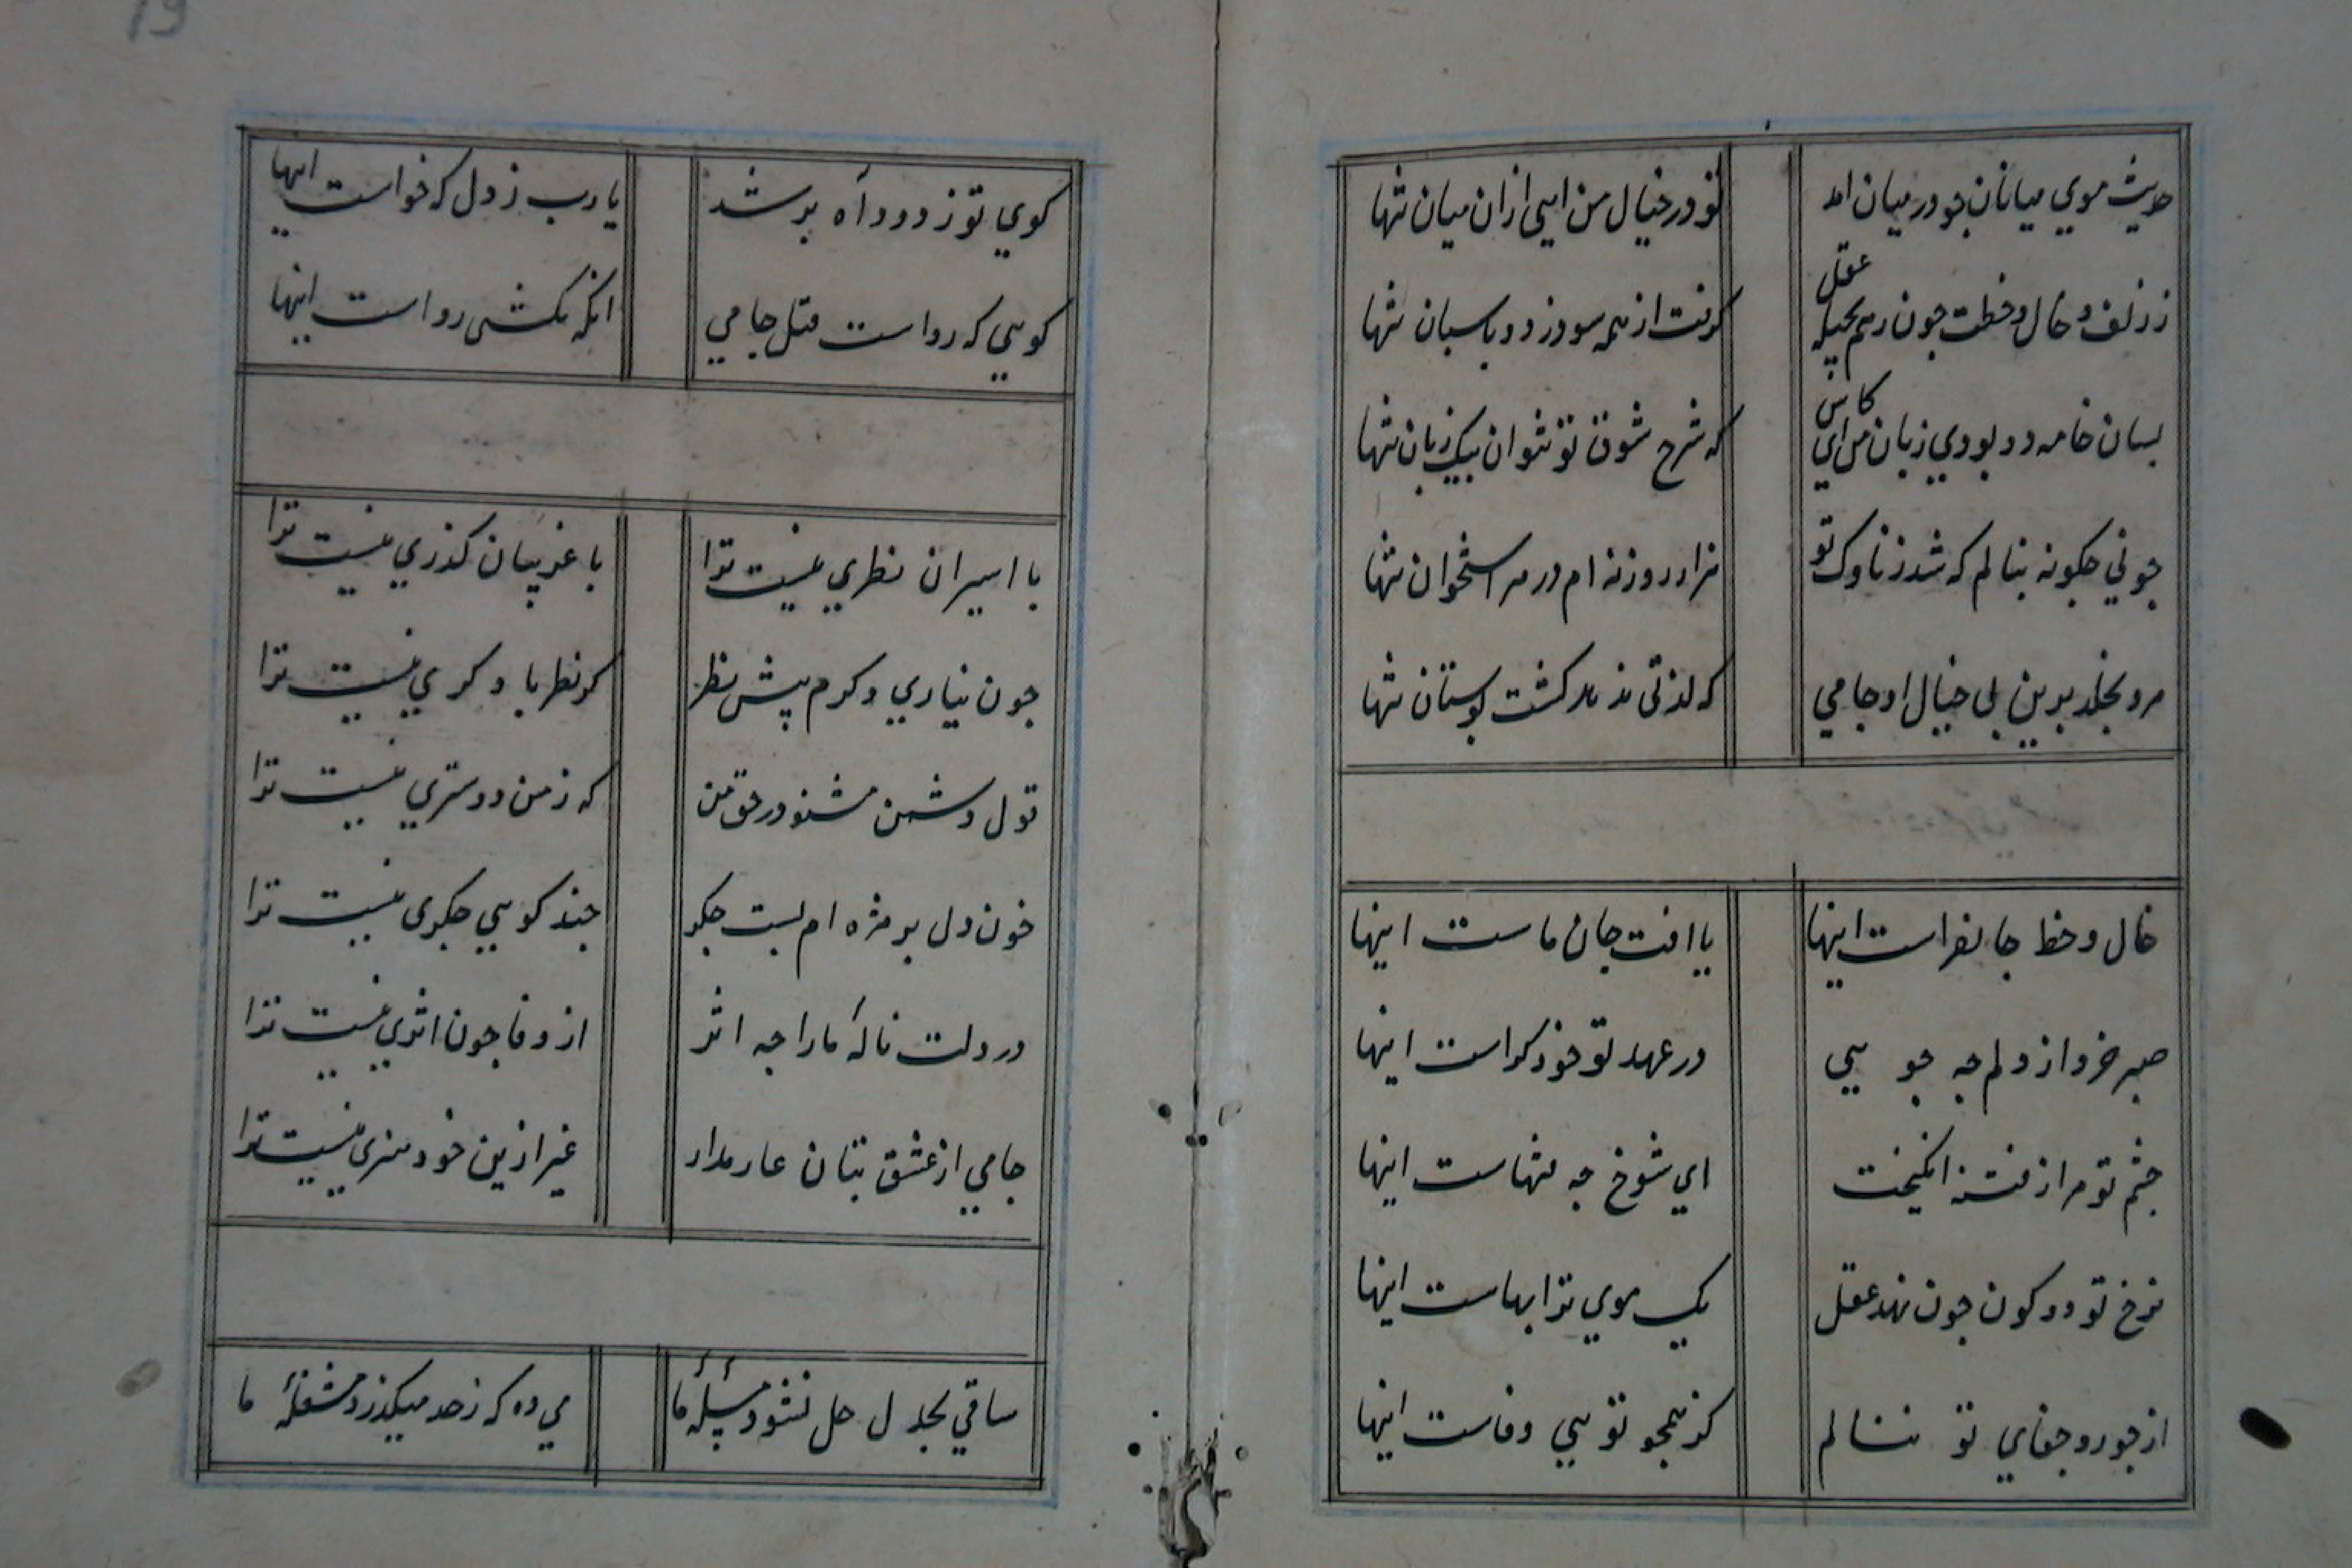 حدیث موي میانان جو در میان امد
تو در خیال من ایی ازان میان تنها
ز زلف و خال و خطت جون رهم بحیله عقل
گرفت از همه سو دزد و باسبان تنها
بسان خامه دو بودي زبان من اي کاش
که شرح شوق تو نتوان بیک زبان تنها
جو ني جکونه ننالم که شد ز ناوک تو
هزار روزنه ام در هر استخوان تنها
مرو بخلد برین بی خیال او جامي
که لذتی ندهد کشت بوستان تنها
خال و خط جانفزاست اینها
یا افت جان ماست اینها
صبر و خرد از دلم جه جویي
در عهد تو خود کراست اینها
جشم تو هزار فتنه انکیخت
اي شوخ جه فتنهاست اینها
نرخ تو دو کون جون نهد عقل
یک موي ترا بهاست اینها
از جور و جفاي تو ننالم
کز همجو تویي وفاست اینها
کوي تو ز دود آه بر شد
یا رب ز دل که خواست اینها
کویي که رواست قتل جامي
انکه نکشی رواست اینها
با اسیران نظري نیست ترا
با غریبان کذري نیست ترا
جون نیاري دکرم پیش نظر
کر نظر با دکري نیست ترا
قول دشمن مشنو در حق من
که ز من دوستري نیست ترا
خون دل بر مژه ام بست جکر
جند کویي جکری نیست ترا
در دلت نالهٔ ما را جه اثر
از وفا جون اثري نیست ترا
جامي از عشق بتان عار مدار
غیر ازین خود هنری نیست ترا
ساقي بجدل حل نشود مسئلهٔ ما
مي ده که ز حد میکذرد مشغلهٔ ما
19